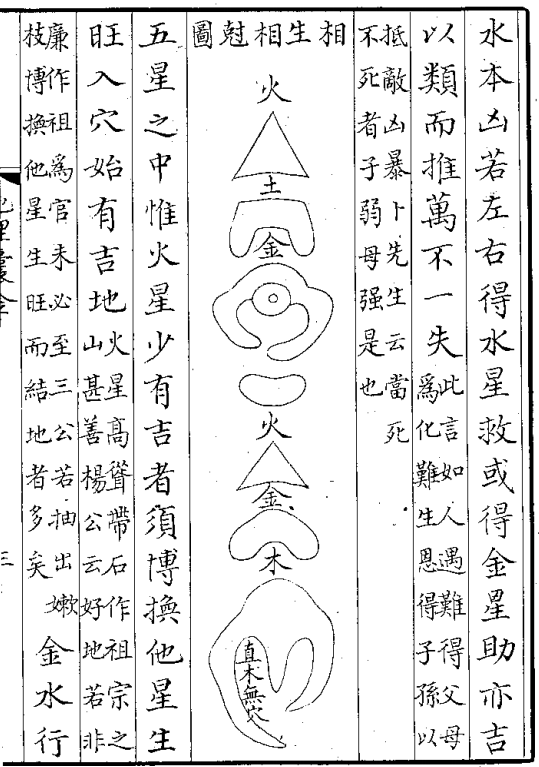 水本凶若左右得水星救或得金星助亦吉
以類而推萬不一失此言如人遇難得父母
為化難生恩得子孫以
抵敵凶暴卜先生云當死
不死者子弱母强是也
相生相尅圖
火
土
金
火
金
木
直木無穴
五星之中惟火星少有吉者須博換他星生
旺入穴始有吉地火星高聳帶石作祖宗之
山甚善楊公云好地若非
廉作祖為官未必至三公若抽出嫰
枝博換他星生旺而結地者多矣
金水行
三